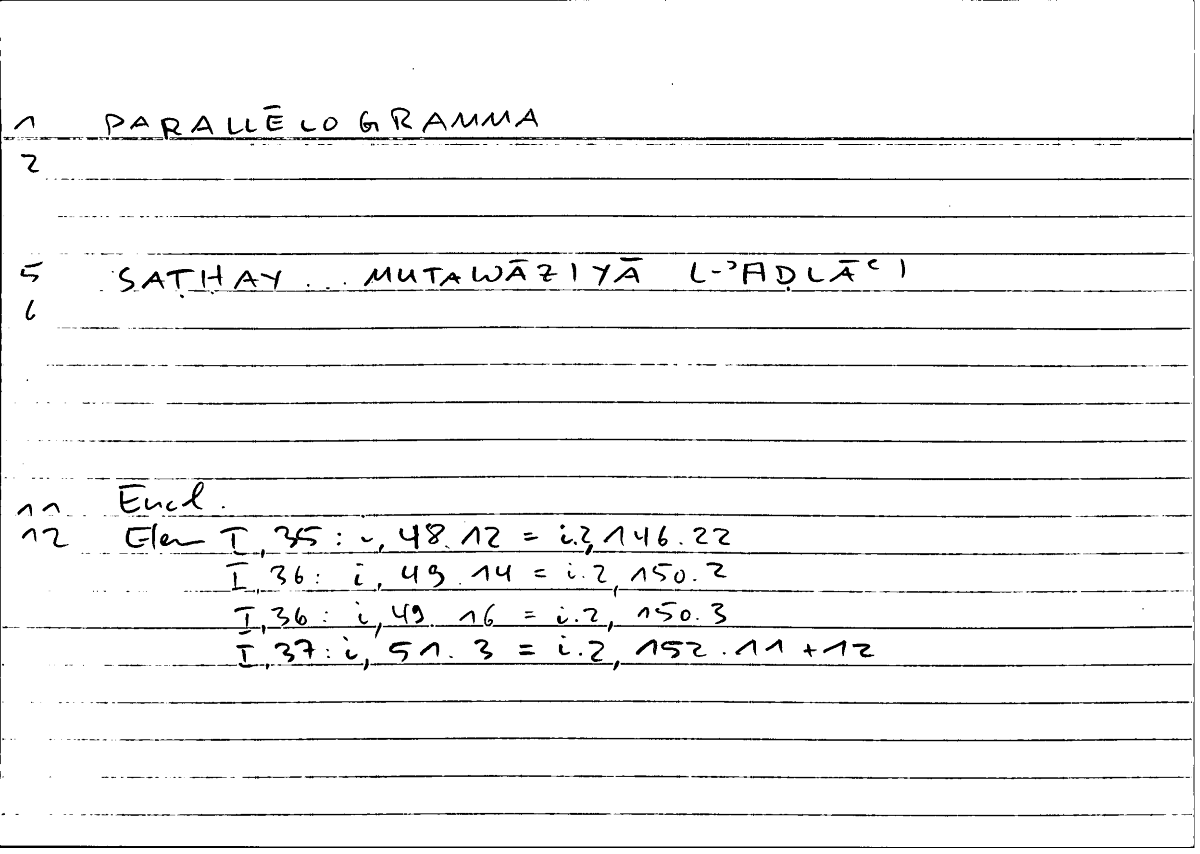 1 PARALLĒLOGRAMMA
2
5 SAṬḤAY ... MUTAWĀZIYĀ L-ʾAḌLĀʿI
6
11 Eucl.
12 Elem I, 35 : i, 48.12 = i.2, 146.22
I, 36 : i, 49.14 = i.2, 150.2
I, 36 : i, 49.16 = i.2, 150.3
I, 37 : i, 51.3 = i.2, 152.11 + 12